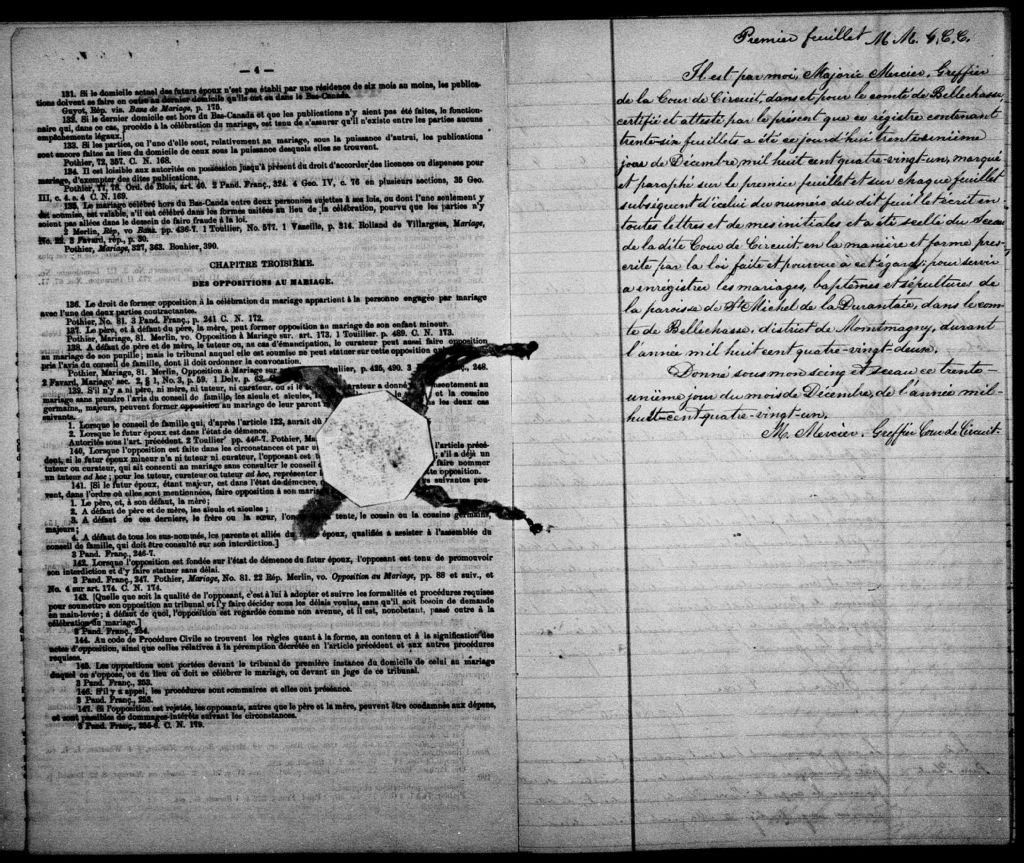 — 4 —
131. Si le domicile actuel des futurs époux n'est pas établi par une résidence de six mois au moins, les publica-
tions doivent se faire en outre au dernier domicile qu'ils ont eu dans le Bas-Canada.
Guyot, Rép. vis. Bans de Mariage, p. 175.
132. Si le dernier domicile est hors du Bas-Canada et que les publications n'y aient pas été faites, le fonction-
naire qui, dans ce cas, procède à la célébration du mariage, est tenu de s'assurer qu'il n'existe entre les parties aucuns
empêchements légaux.]
133. Si les parties, ou l'une d'elle sont, relativement au mariage, sous la puissance d'autrui, les publications
sont encore faites au lieu du domicile de ceux sous la puissance desquels elles se trouvent.
Pothier, 72, 357. C. N. 168.
134. Il est loisible aux autorités en possession jusqu'à présent du droit d'accorder des licences ou dispenses pour
mariage, d'exempter des dites publications.
Pothier, 77, 78. Ord. de Blois, art. 40. 2 Pand. Franç., 324. 4 Geo. IV, c. 76 en plusieurs sections, 35 Geo.
III, c. 4. s. 4 C. N. 169.
135. Le mariage célébré hors du Bas-Canada entre deux personnes sujettes à ses lois, ou dont l'une seulement y
est soumise, est valable, s'il est célébré dans les formes usitées au lieu de la célébration, pourvu que les parties n'y
soient pas allées dans le dessein de faire fraude à la loi.
2 Merlin, Rép, vo Bans. pp. 436-7. 1 Toullier, No. 577. 1 Vazeille, p. 314. Rolland de Villargues, Mariage,
No. 3 Favard, rép., p. 30.
Pothier, Mariage, 327, 363. Bouhier, 390.
CHAPITRE TROISIÈME.
DES OPPOSITIONS AU MARIAGE.
136. Le droit de former opposition à la célébration du mariage appartient à la personne engagée par mariage
avec l'une des deux parties contractantes.
Pothier, No. 81. 3 Pand. Franç., p. 241 C. N. 172.
137. Le père, et à défaut du père, la mère, peut former opposition au mariage de son enfant mineur.
Pothier, Mariage, 81. Merlin, vo. Opposition à Mariage sur art. 173. 1 Touillier. p. 489. C. N. 173.
138. A défaut de père et de mère, le tuteur ou, au cas d'émancipation, le curateur peut aussi faire opposition
au mariage de son pupille; mais le tribunal auquel elle est soumise ne peut statuer sur cette opposition
pris l'avis du conseil de famille, dont il doit ordonner la convocation.
Pothier, Mariage, 81. Merlin, Opposition à Mariage sur llier, p. 425, 490. 3 Franç., 248.
2 Favard, Mariage sec. 2, § 1, No. 3, p. 59. 1 Delv. p. 62.
139. S'il n'y a ni père, ni mère, ni tuteur, ni curateur, ou si le curateur a donné sentement au
mariage sans prendre l'avis du conseil de famille, les aïeuls et aïeules, et la cousine
germains, majeurs, peuvent former opposition au mariage de leur parent les deux cas
suivants.
1. Lorsque le conseil de famille qui, d'après l'article 122, aurait dû
2. Lorsque le futur époux est dans l'état de démence.
Autorités sous l'art. précédent. 2 Toullier pp. 446-7. Pothier, Ma
140. Lorsque l'opposition est faite dans les circonstances et par u l'article précé-
dent, si le futur époux mineur n'a ni tuteur ni curateur, l'opposant est t ; s'il a déjà un
tuteur ou curateur, qui ait consenti au mariage sans consulter le conseil faire nommer
un tuteur ad hoc; pour les tuteur, curateur ou tuteur ad hoc, représenter te opposition.
141. [Si le futur époux, étant majeur, est dans l'état de démence, s suivantes peu-
vent, dans l'ordre où elles sont mentionnées, faire opposition à son mari
1. Le père, et, à son défaut, la mère;
2. A défaut de père et de mère, les aïeuls et aïeules;
3. A défaut de ces derniers, le frère ou la sœur, l'on tente, le cousin ou la cousine germains,
majeurs;
4. A défaut de tous les sus-nommés, les parents et alliés du époux, qualifiés à assister à l'assemblée du
conseil de famille, qui doit être consulté sur son interdiction.]
3 Pand. Franç., 246-7.
142. Lorsque l'opposition est fondée sur l'état de démence du futur époux, l'opposant est tenu de promouvoir
son interdiction et d'y faire statuer sans délai.
3 Pand. Franç., 247. Pothier, Mariage, No. 81. 22 Rép. Merlin, vo. Opposition au Mariage, pp. 88 et suiv., et
No. 4 sur art. 174. C. N. 174.
143. [Quelle que soit la qualité de l'opposant, c'est à lui à adopter et suivre les formalités et procédures requises
pour soumettre son opposition au tribunal et l'y faire décider sous les délais voulus, sans qu'il soit besoin de demande
en main-levée; à défaut de quoi, l'opposition est regardée comme non avenue, et il est, nonobstant, passé outre à la
célébration du mariage.]
3 Pand. Franç., 254.
144. Au code de Procédure Civile se trouvent les règles quant à la forme, au contenu et à la signification des
actes d'opposition, ainsi que celles relatives à la péremption décrétée en l'article précédent et aux autres procédures
requises.
145. Les oppositions sont portées devant le tribunal de première instance du domicile de celui au mariage
duquel on s'oppose, ou du lieu où doit se célébrer le mariage, ou devant un juge de ce tribunal.
3 Pand. Franç., 253.
146. S'il y a appel, les procédures sont sommaires et elles ont préséance.
3 Pand. Franç., 253.
147. Si l'opposition est rejetée, les opposants, autres que le père et la mère, peuvent être condamnés aux dépens,
et sont passibles de dommages-intérêts suivant les circonstances.
3 Pand. Franç., C. N. 179.
Premier feuillet M. M. G. C. C.
Il est par moi, Majoric Mercier, Greffier
de la Cour de Circuit, dans et pour le comté de Bellechasse,
certifié et attesté par le présent que ce registre contenant
trente-six feuillets a été ce jourd'hui trente-unième
jour de Décembre, mil huit cent quatre-vingt-un, marqué
et paraphé sur le premier feuillet et sur chaque feuillet
subséquent d'icelui du numéro du dit feuillet écrit en
toutes lettres et de mes initiales et a été scellé du Sceau
de la dite Cour de Circuit en la manière et forme pres-
crite par la loi faite et pourvue à cet égard; pour servir
a enregistrer les mariages, baptêmes et sépultures de
la paroisse de St Michel de la Durantaie, dans le com-
té de Bellechasse, district de Montmagny, durant
l'année mil huit cent quatre-vingt-deux.
Donné sous mon seing et sceau ce trente-
unième jour du mois de Décembre, de l'année mil-
huit-cent-quatre-vingt-un.
M. Mercier. Greffier Cour de Circuit.